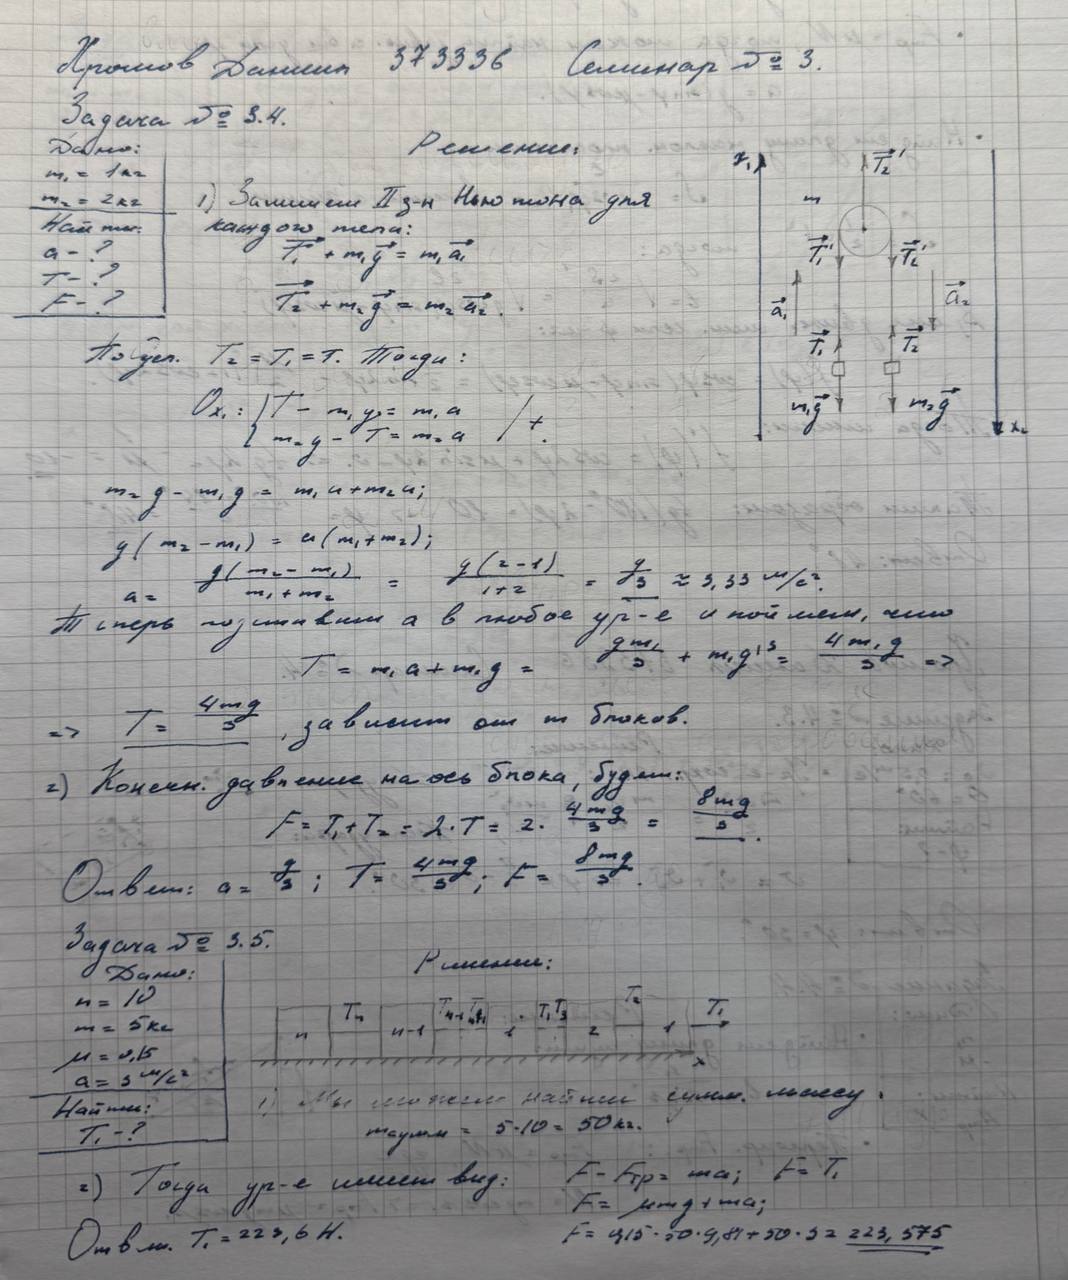 Хромов Даниил 373336 Семинар № 3.
Задача № 3.4.
Дано:
m₁ = 1кг
m₂ = 2кг
Найти:
a - ?
T - ?
F - ?
Решение:
1) Запишем II з-н Ньютона для
каждого тела:
T₁ + m₁g = m₁a₁
T₂ + m₂g = m₂a₂.
x₁
T₂'
m
T₁'
T₂'
a₁
a₂
T₁
T₂
m₁g
m₂g
x₂
По усл. T₂ = T₁ = T. Тогда:
Ox₁: { T - m₁g = m₁a
m₂g - T = m₂a | +.
m₂g - m₁g = m₁a + m₂a;
g(m₂ - m₁) = a(m₁ + m₂);
a = g(m₂ - m₁)/(m₁ + m₂) = g(2-1)/(1+2) = g/3 ≈ 3,33 м/с².
Теперь подставим a в любое ур-е и поймем, что
T = m₁a + m₁g = gm₁/3 + m₁g^{\3} = 4m₁g/3 =>
=> T = 4mg/3, зависит от m блоков.
2) Конечн. давление на ось блока, будет:
F = T₁ + T₂ = 2·T = 2· 4mg/3 = 8mg/3.
Ответ: a = g/3; T = 4mg/3; F = 8mg/3.
Задача № 3.5.
Дано:
n = 10
m = 5кг
μ = 0,15
a = 3 м/с²
Найти:
T₁ - ?
Решение:
n Tₙ n-1 2 T₂ 1 T₁
x
1) Мы можем найти сумм. массу.
mсумм = 5·10 = 50кг.
2) Тогда ур-е имеет вид: F - Fтр = ma; F = T₁
F = μmg + ma;
F = 0,15·50·9,81 + 50·3 = 223,575
Ответ. T₁ = 223,6 Н.